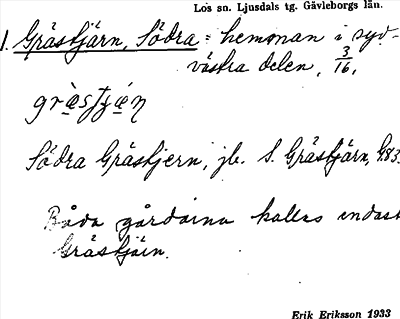 Los sn. Ljusdals tg. Gävleborgs län.
1. Grästjärn, Södra = hemman i syd-
västra delen, 3/16,
Södra Grästjern, jb. S. Grästjärn,
Båda gårdarna kallas endast
Grästjärn.
Erik Eriksson 1933